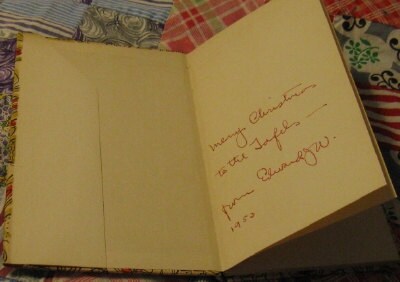 merry Christmas
to the Tafels —
from Edward J W.
1950